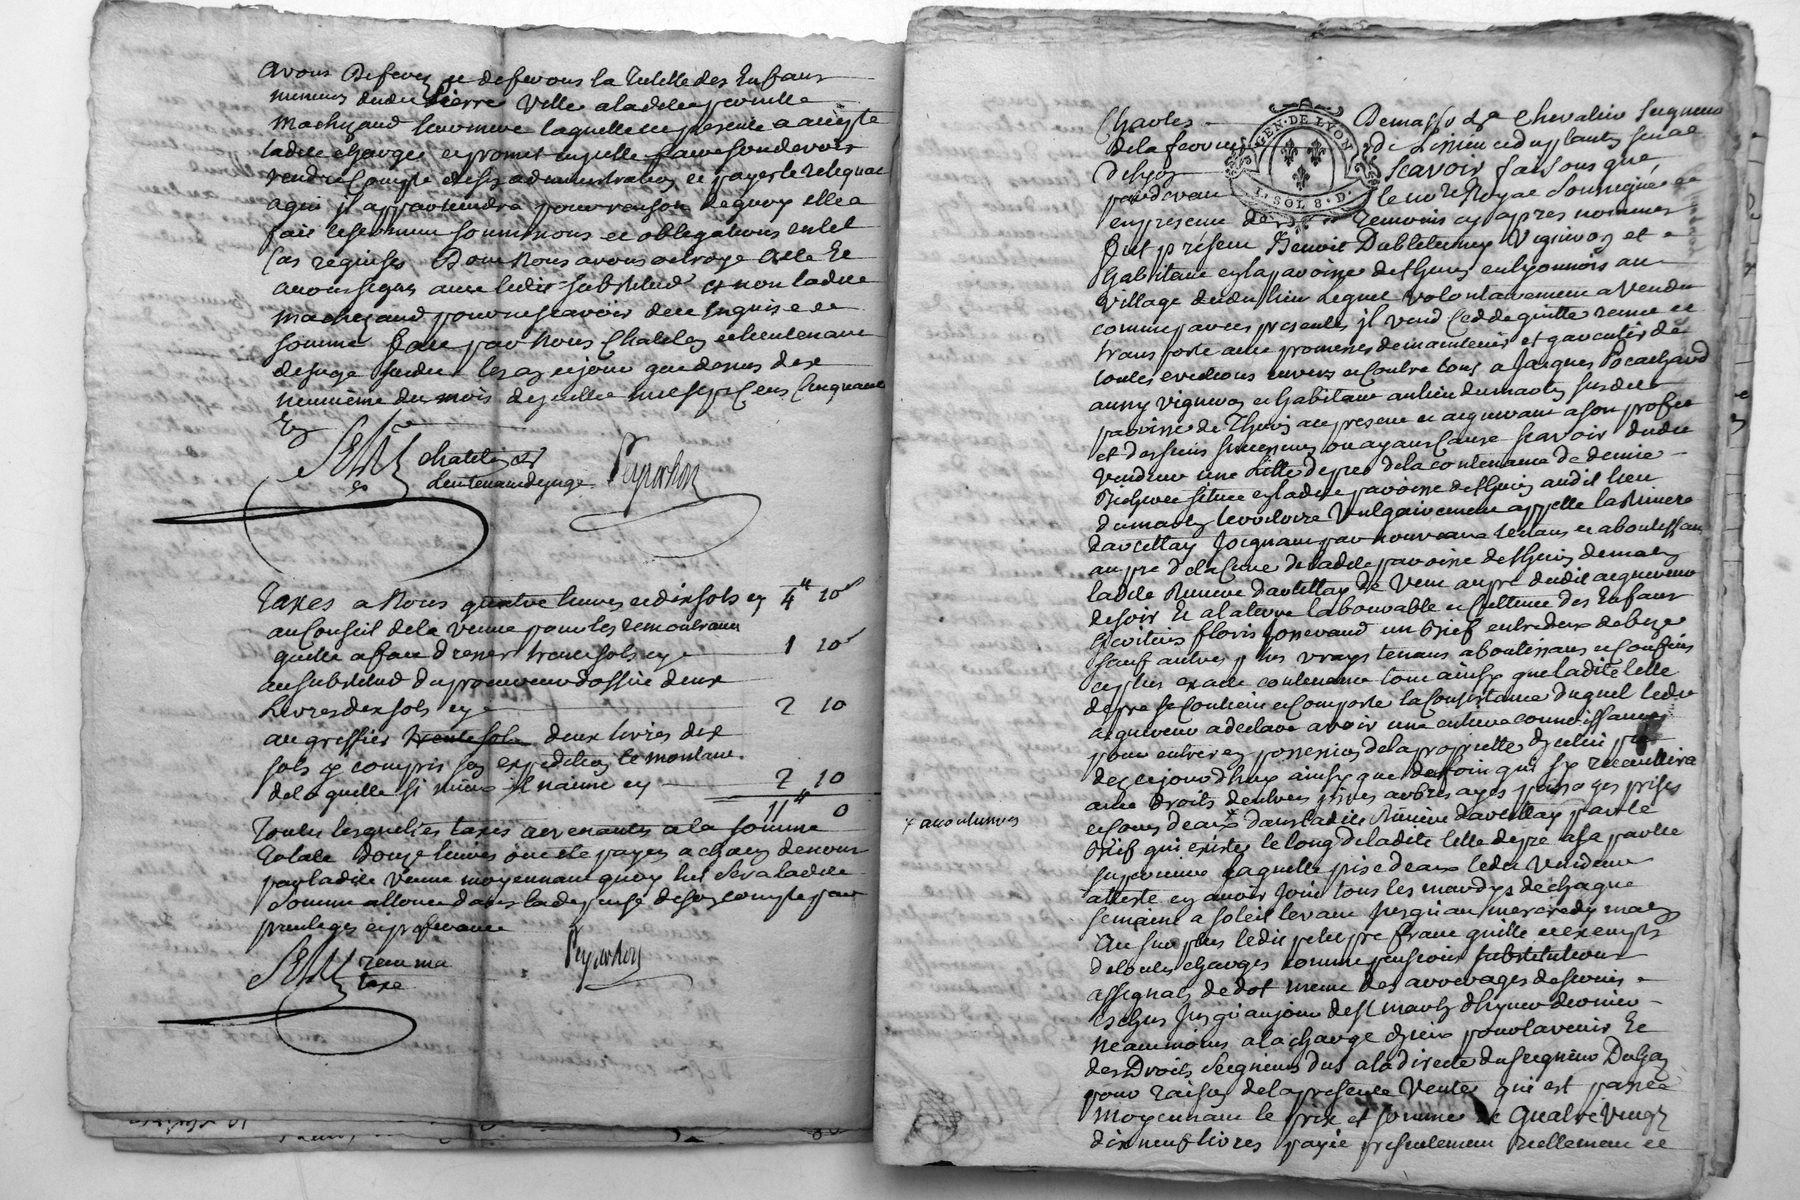 avons deferez et deferons la tutelle des enfans
mineurs dudit Pierre Ville a ladite
leur mere laquelle icy presente a accepté
ladite charge et promet en icelle faire son devoir
rendre compte de son administration et payer le reliqua
a qui il appartiendra pour raison de quoy elle a
fait les soumissions et obligations en tel
cas requises Dont nous avons octroyé acte et
avons signé avec ledit substitud et non ladite
pour ne scavoir de ce enquise et
sommée fait par nous Chatelain et lieutenant
de juge susdit les an et jour que dessus dix
neuvieme du mois de juillet mil sept cens cinquante
chatelain et
Lieutenant de juge Peyrichon
Taxes a Nous quatre livres et dix sols cy 4 10
au Conseil de la veuve pour les remontrances
quelle a fait dresser trente sols cy 1 10
au substitud du procureur d'office deux
Livres dix sols cy 2 10
au greffier trente sols deux livres dix
sols y compris son expedition le montant
de laquelle si mieux il n'aime cy 2 10
11 0
Toutes lesquelles taxes revenantes a la somme
Totale d'onze livres ont été payez a chacun de nous
par ladite veuve moyennant quoy lui sera ladite
somme allouée dans la depense de son compte par
privileges et preferance
receu ma
taxe
Peyrichon
Charles Demasso &a Chevalier Seigneur
de la ferriere du plantin senal
de Lyon Scavoir faisons que
pardevant le no.re Royal soussigné et
en presence de temoins cy apres nommés
GEN. DE LYON
1. SOL 8. D.
fut présent Benoit vigneron et
habitant en la paroisse de Thurins en lyonnois au
village dudit lieu lequel volontairement a vendu
comme par ces presentes il vend cedde quitte remet et
transporte avec promesses de maintenir et garentir de
toutes evictions envers et contre tous a Jacques
aussy vigneron et habitant au lieu du susdite
paroisse de Thurins icy present et acquerant a son profit
et des siens successeurs ou ayans cause scavoir dudit
vendeur une lisle de pré de la contenance de demie
Bicherée située en ladite paroisse de Thurins audit lieu
du territoire vulgairement appellé la Riviere
joignant par nouveaux tenans et aboutissans
au pré de la cure de ladite paroisse de Thurins de matin
ladite Riviere de vent au pré dudit acquereur
de soir et a la terre labourable et culture des enfans
et heritiers floris un bief entre deux de bize
sauf autres plus vrays tenans aboutissans et confins
et plus exacte contenance tout ainsy que ladite lisle
de pré se contient et comporte la consistance duquel ledit
acquereur a declaré avoir une entiere connoissance
pour entrer en possession de la proprieté d'icelui pré
dez cejourd'huy ainsy que du foin qui s'y recueillira
avec droits d'entrées issues arbres ayes passages prises
et cours deaux × dans ladite Riviere par le
× accoutumées
bief qui existe le long de ladite lisle de pré a sa partie
superieure laquelle prise d'eaux ledit vendeur
atteste en avoir joui tous les mardys de chaque
semaine a soleil levant jusqu'au mercredy matin
Au surplus ledit petit pré franc quitte et exempt
de toutes charges comme pensions substitutions
assignats de dot meme des arrerages de servis
eschus jusqu'au jour de st martin d'hyver dernier
neanmoins a la charge d'iceux pour l'avenir et
des Droits Seigneur. dus a la directe du seigneur
pour raison de la presente vente qui est passée
moyennant le prix et somme de quatre vingt
dix neuf livres payée presentement reellement et